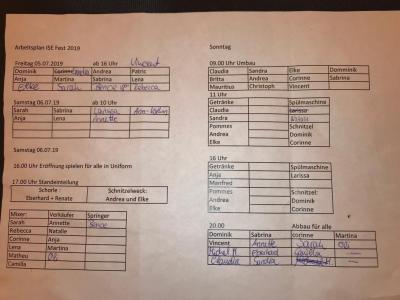 Arbeitsplan ISE Fest 2019
Freitag 05.07.2019 ab 16 Uhr Vincent
Dominik Corinne Andrea Patric
Anja Martina Sabrina Lena
Elke Sarah Rebecca
Samstag 06.07.19 ab 10 Uhr
Sarah Sabrina Larissa
Anja Lena Annette
Samstag 06.07.19
16.00 Uhr Eröffnung spielen für alle in Uniform
17.00 Uhr Standeinteilung
Schorle : Schnitzelweck:
Eberhard + Renate Andrea und Elke
Mixer: Verkäufer Springer
Sarah Annette
Rebecca Natalie
Corinne Anja
Lena Martina
Matheu Oli
Camilla
Sonntag
09.00 Uhr Umbau
Claudia Sandra Elke Domminik
Britta Andrea Corinne Sabrina
Mauritius Christoph Vincent
11 Uhr
Getränke Spülmaschine
Claudia Larissa
Sandra
Pommes Schnitzel
Andrea Dominik
Elke Corinne
16 Uhr
Getränke Spülmaschine
Anja Larissa
Manfred
Pommes Schnitzel:
Dominik Dominik
Elke Corinne
20.00 Abbau für alle
Dominik Sabrina corinne Martina
Vincent Annette Sarah Oli
Michel M Eberhard
Claudia Sandra